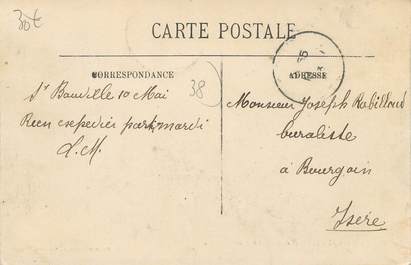 30€
CARTE POSTALE
CORRESPONDANCE
ADRESSE
38
St Bauville 10 Mai
Rien expedier part mardi
L.M.
Monsieur Joseph Rabilloud
buraliste
à Bourgoin
Isère